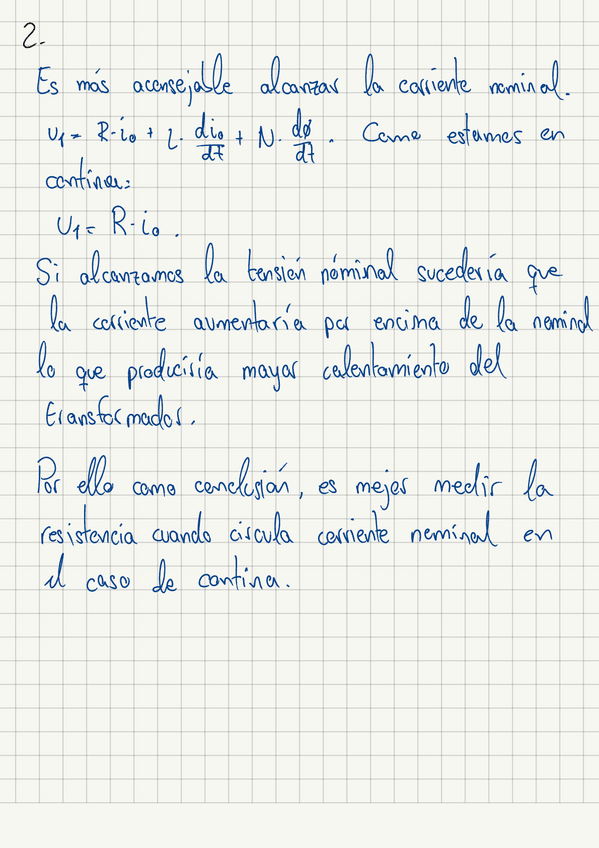 2.
Es más aconsejable alcanzar la corriente nominal.
U1 = R·i0 + L·di0/dt + N·dø/dt. Como estamos en
continua:
U1 = R·i0.
Si alcanzamos la tensión nóminal sucedería que
la corriente aumentaría por encima de la nominal
lo que produciría mayor calentamiento del
transformador.
Por ello como conclusión, es mejor medir la
resistencia cuando circula corriente nominal en
el caso de contina.